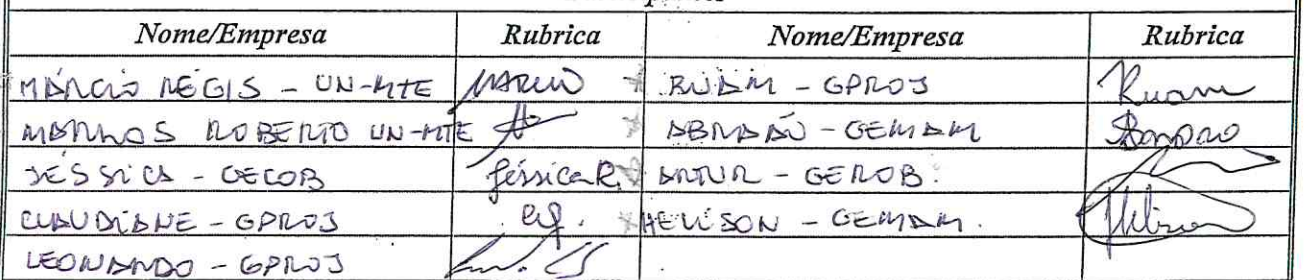 Nome/Empresa Rubrica Nome/Empresa Rubrica
MÁRCIO RÉGIS - UN-MTE MARCIO RUAM - GPROJ Ruam
MARKOS ROBERTO UN-MTE ABRAÃO - GEMAM
JÉSSICA - GECOB Jéssica R. ARTUR - GEROB.
CLAUDIANE - GPROJ HELISON - GEMAM.
LEONARDO - GPROJ